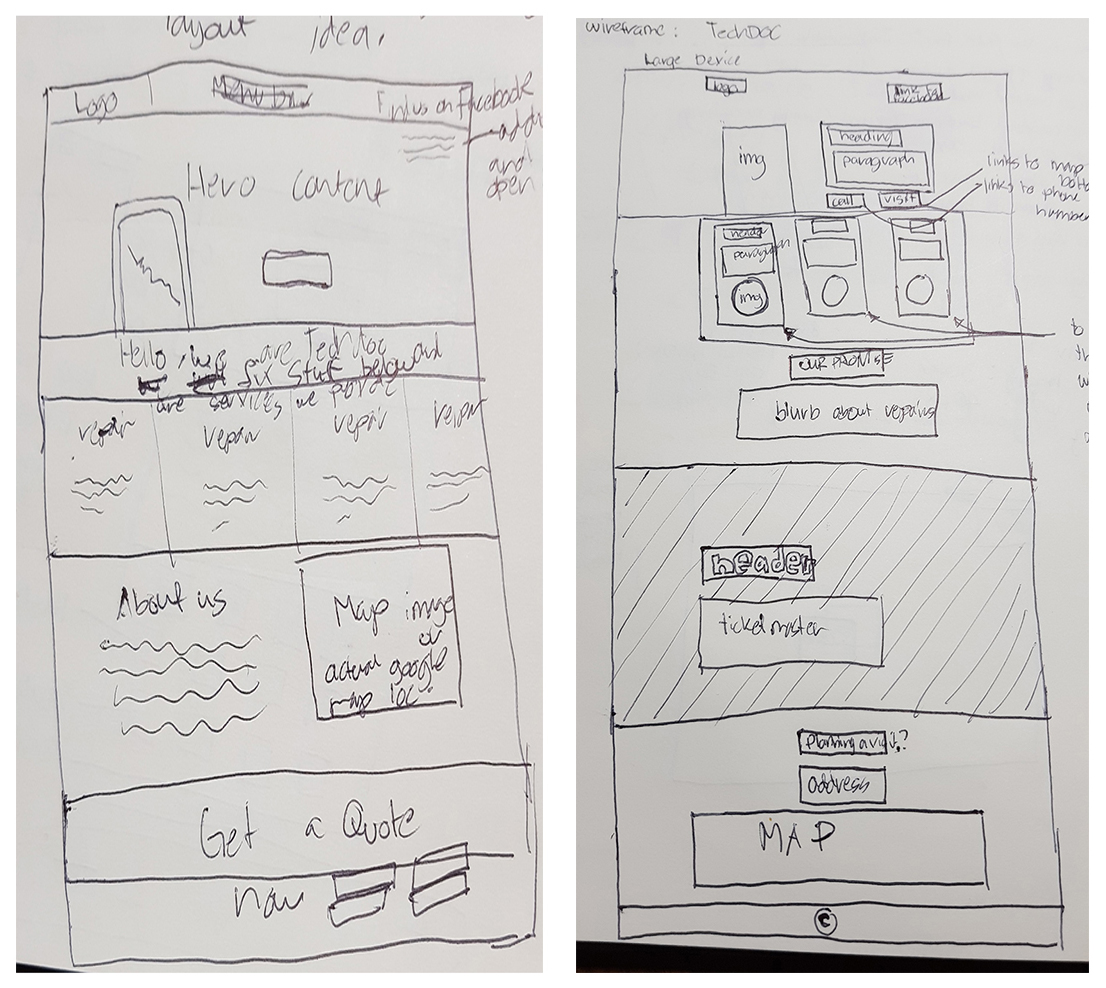 layout idea.
Logo
Menu bar
Find us on Facebook
and
open
Hero content
Hello, we are TechDoc
fix stuff below
are services we
repair
repair
repair
repair
About us
Map image
or
actual google
map loc
Get a Quote
nav
wireframe: TechDOC
Large Device
logo
link to
facebook
img
heading
paragraph
call
visit
links to map
links to phone
number
header
paragraph
img
OUR PROMISE
blurb about repairs
header
ticketmaster
Planning a visit?
address
MAP
©